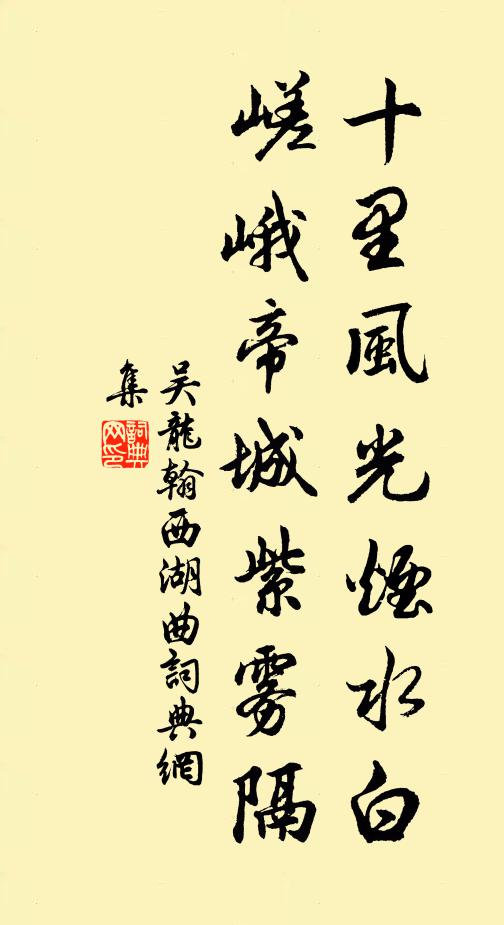 十里風光煙水白
嵯峨帝城紫雾隔
吴龍翰西湖曲詞典網
集
詞典网印